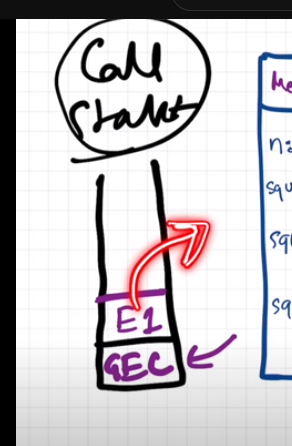 Call
Stack
E1
GEC
Me
n:
squ
sq
sq